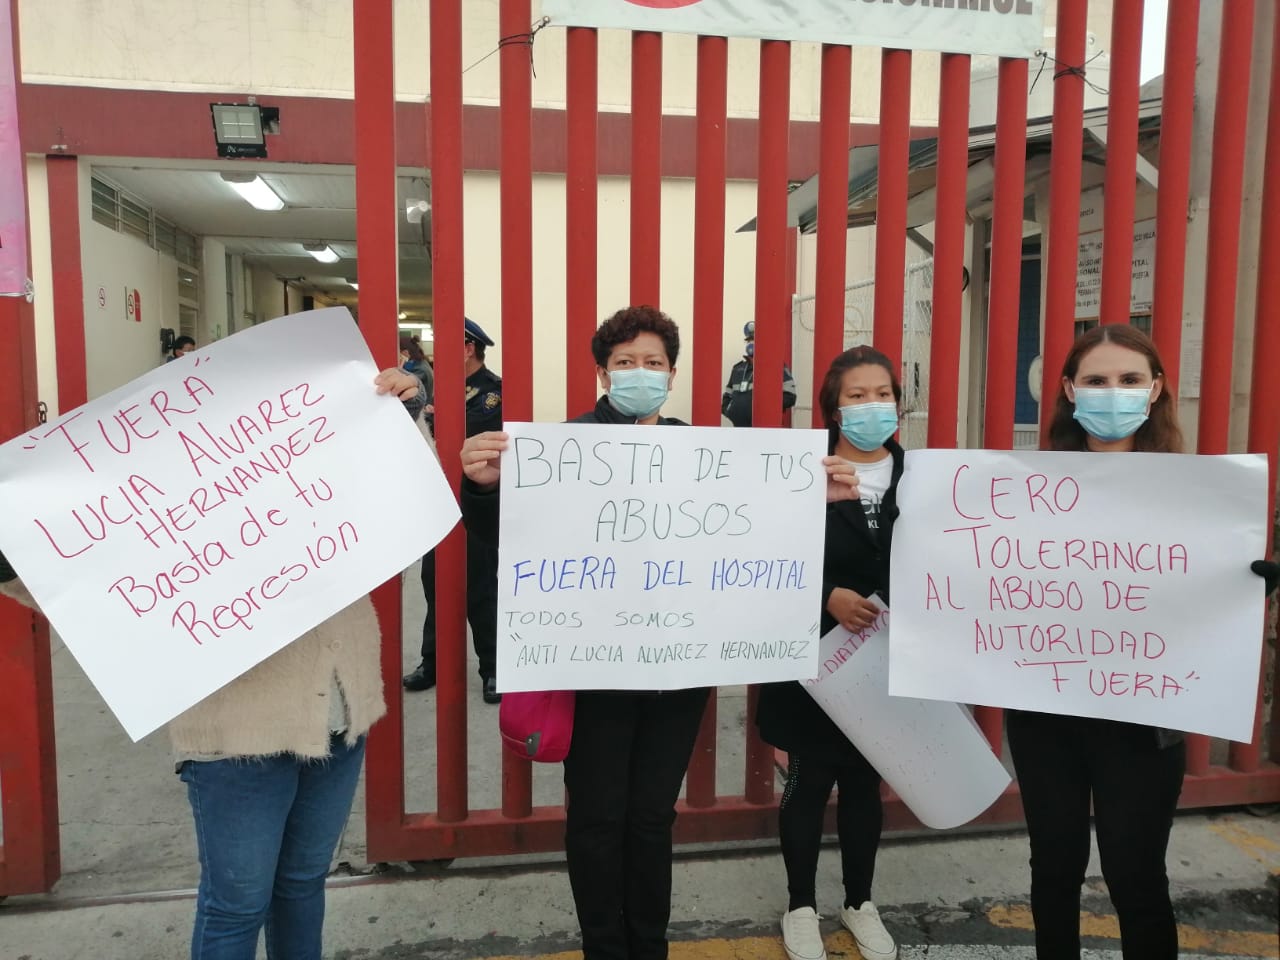 "FUERA"
LUCIA ALVAREZ
HERNANDEZ
Basta de tu
Represión
BASTA DE TUS
ABUSOS
FUERA DEL HOSPITAL
TODOS SOMOS
"ANTI LUCIA ALVAREZ HERNANDEZ"
CERO
TOLERANCIA
AL ABUSO DE
AUTORIDAD
"FUERA"